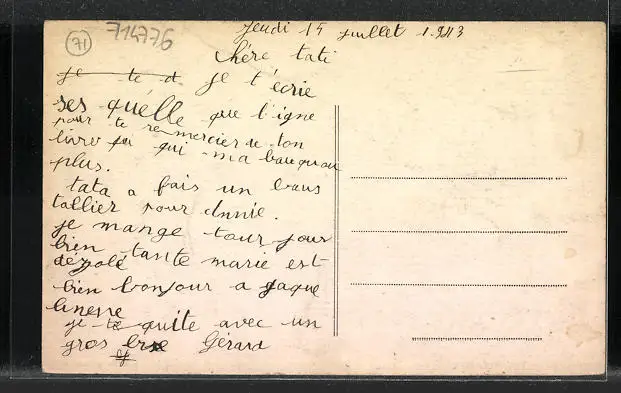 71
714776
Jeudi 15 juillet 1943
Chére tati
je te d je t'écrie
ses quélle que l'igne
pour te remercier de ton
livre qui ma bauquou
plus.
tata a fais un baus
tallier pour Annie.
je mange tour jour
bien tante marie est
dézolé
bien bonjour a jaque
linesre
je te quite avec un
gros Gérard